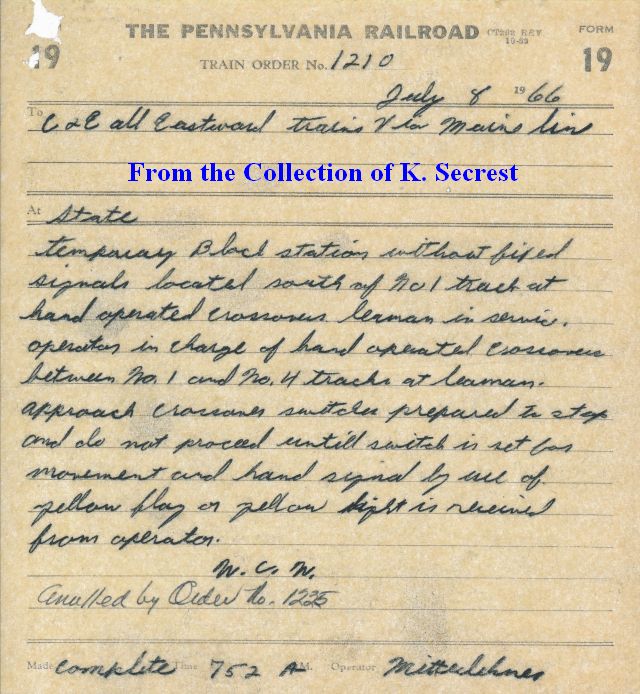 19 THE PENNSYLVANIA RAILROAD CT202 REV 10-52 FORM 19
TRAIN ORDER No. 1210
July 8 1966
To C & E all Eastward trains Via Main lin
From the Collection of K. Secrest
At State
temporary Block station without fixed
signals located south of No 1 track at
hand operated crossovers leaman in servic.
operator in charge of hand operated crossovers
between No. 1 and No. 4 tracks at leaman.
approach crossover switches prepared to stop
and do not proceed untill switch is set for
movement and hand signal by use of
yellow flag or yellow light is received
from operator.
W. C. W.
Anulled by Order No. 1225
Made Complete Time 752 A M. Operator Mitterlehner